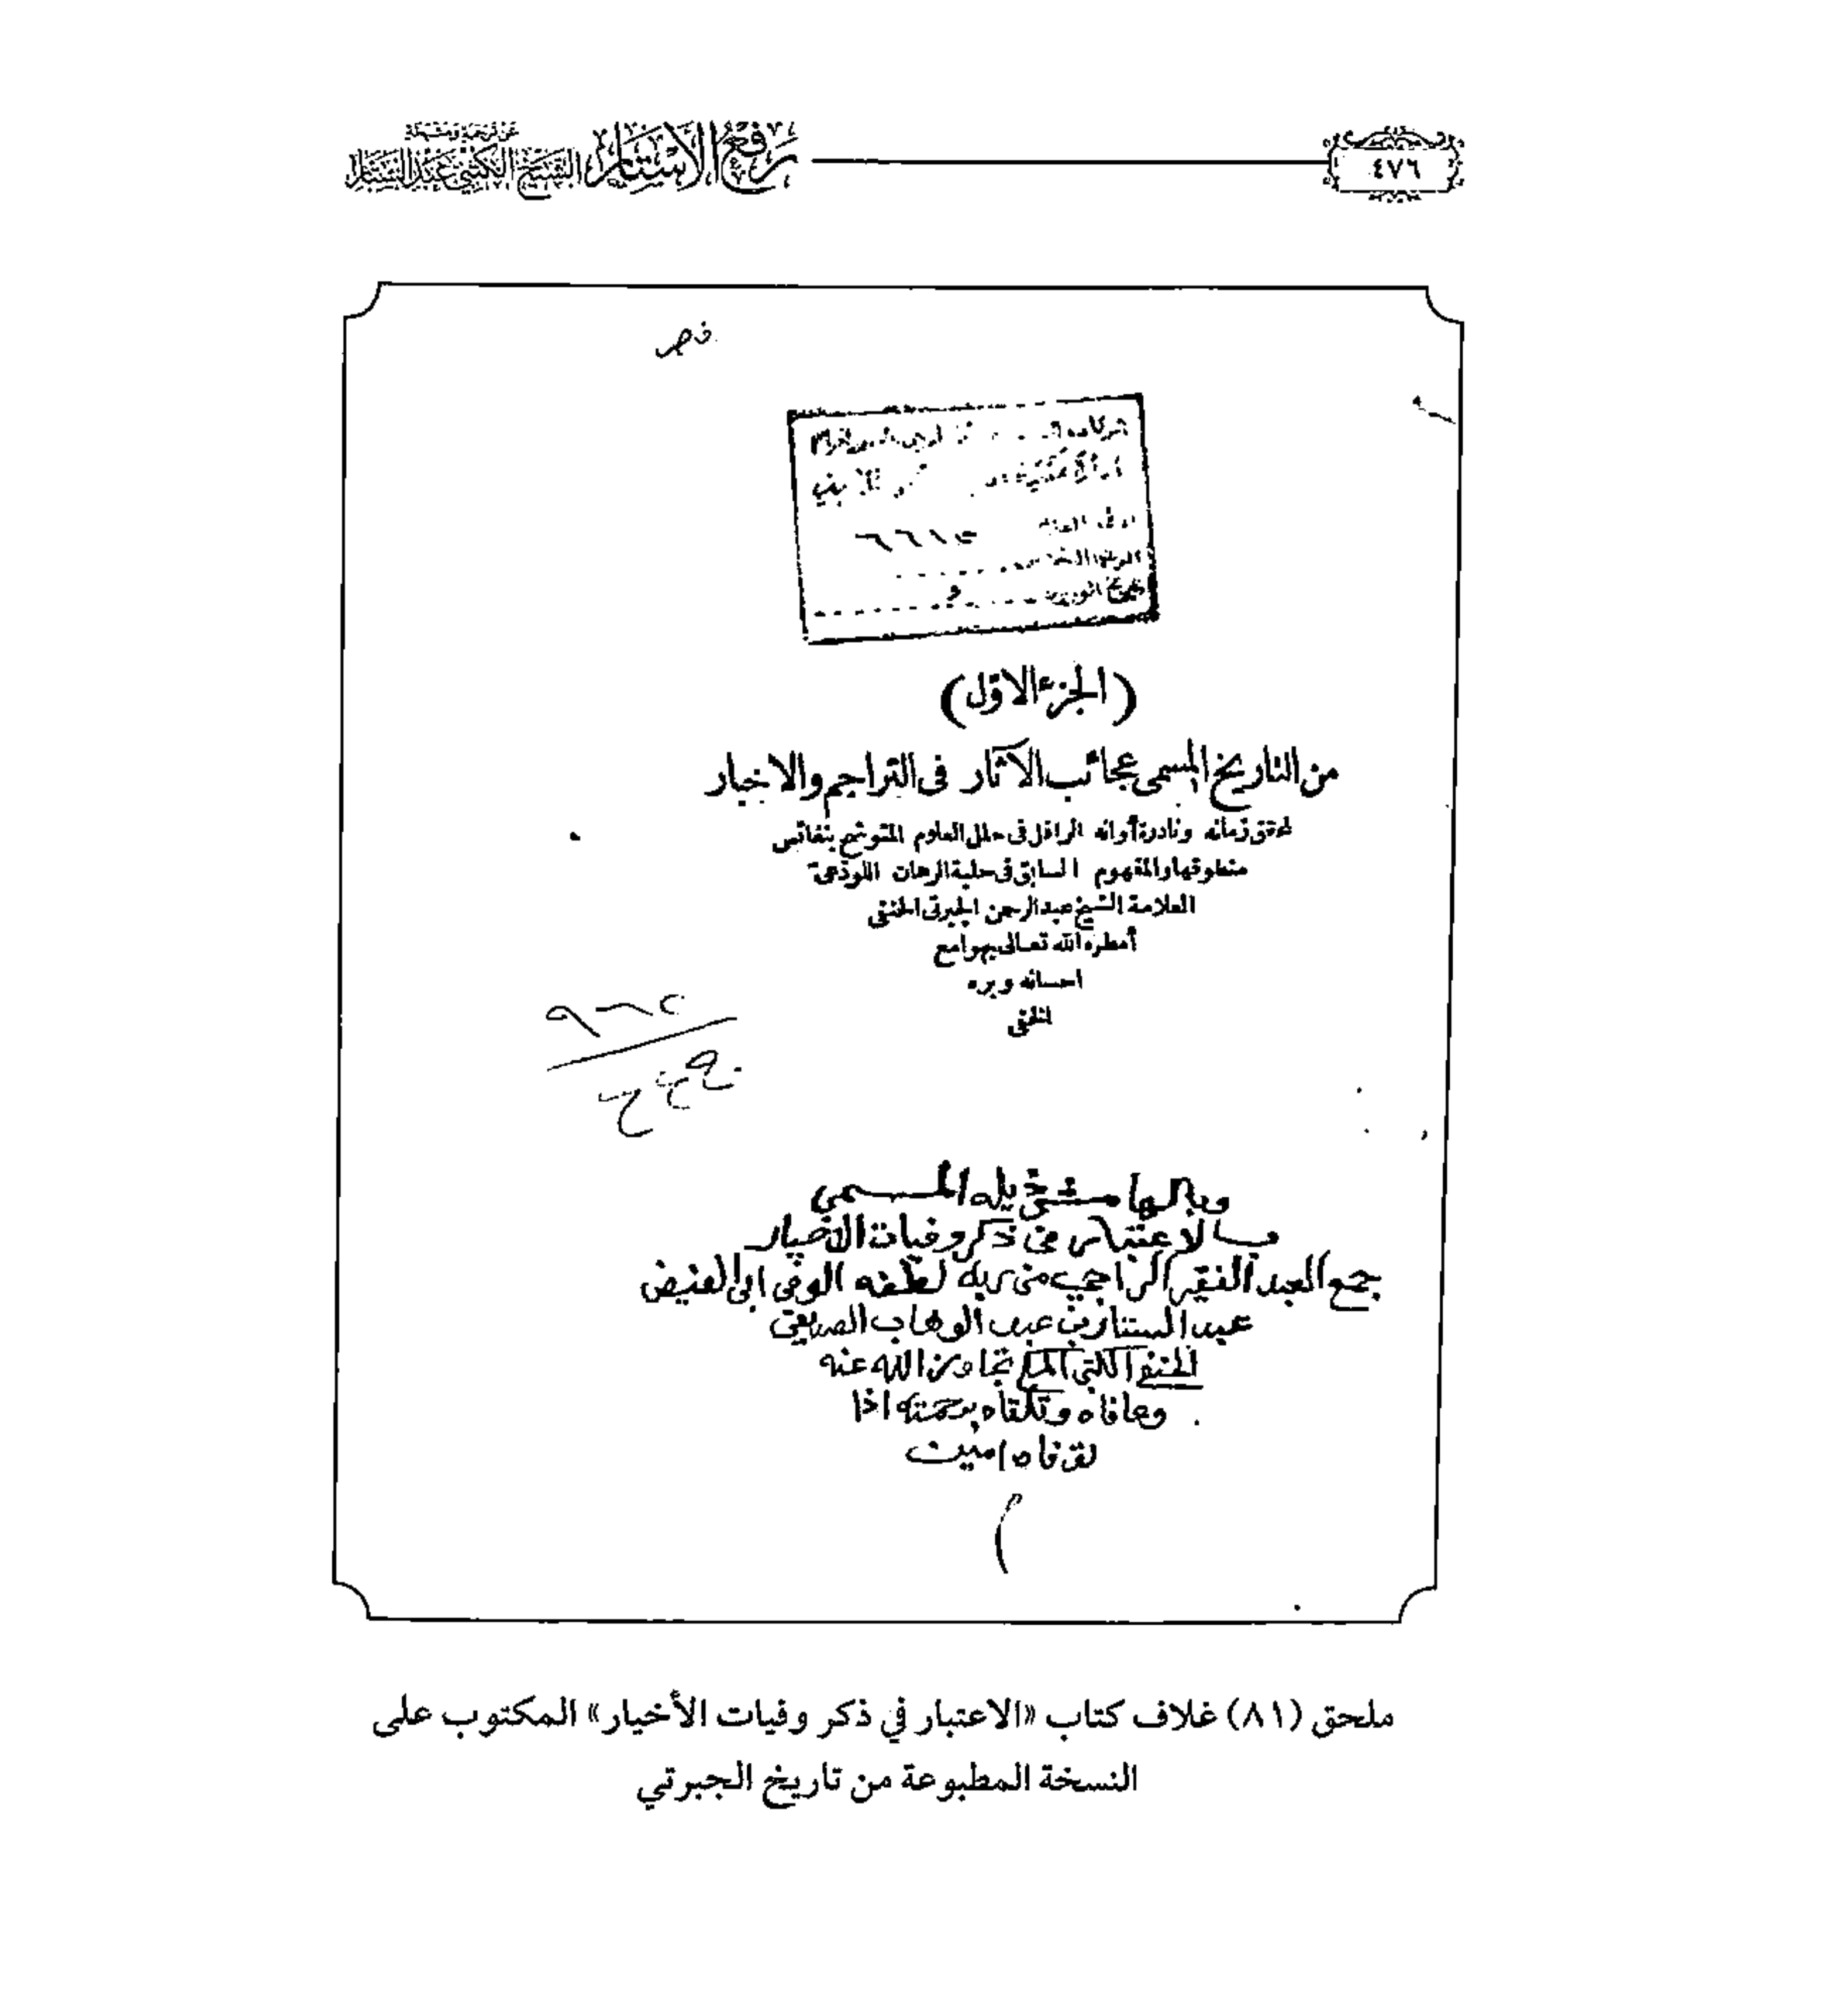 ٤٧٦
رفع الأستار
الشيخ الكتبي عبد الستار
(الجزء الاول)
من التاريخ المسمى عجائب الآثار فى التراجم والاخبار
لمحقق زمانه ونادرة أوانه الرافل فى حلل العلوم المتوشح بنفائس
منطوقها والمفهوم السابق فى حلبة الرهان اللوذعى
العلامة الشيخ عبد الرحمن الجبرتى الحنفى
أمطره الله تعالى بهوامع
احسانه وبره
الخفى
وبالهامش ذيله المسمى
بالاعتبار فى ذكر وفيات الاخيار
جمع العبد الفقير الراجى من ربه لطفه الوفى ابى الفيض
عبد الستار بن عبد الوهاب الصديقى
الحنفى الكتبى المكى تجاوز الله عنه
وعافاه وتلقاه برحمته اذا
توفاه امين
م
ملحق (٨١) غلاف كتاب «الاعتبار في ذكر وفيات الأخيار» المكتوب على
النسخة المطبوعة من تاريخ الجبرتي